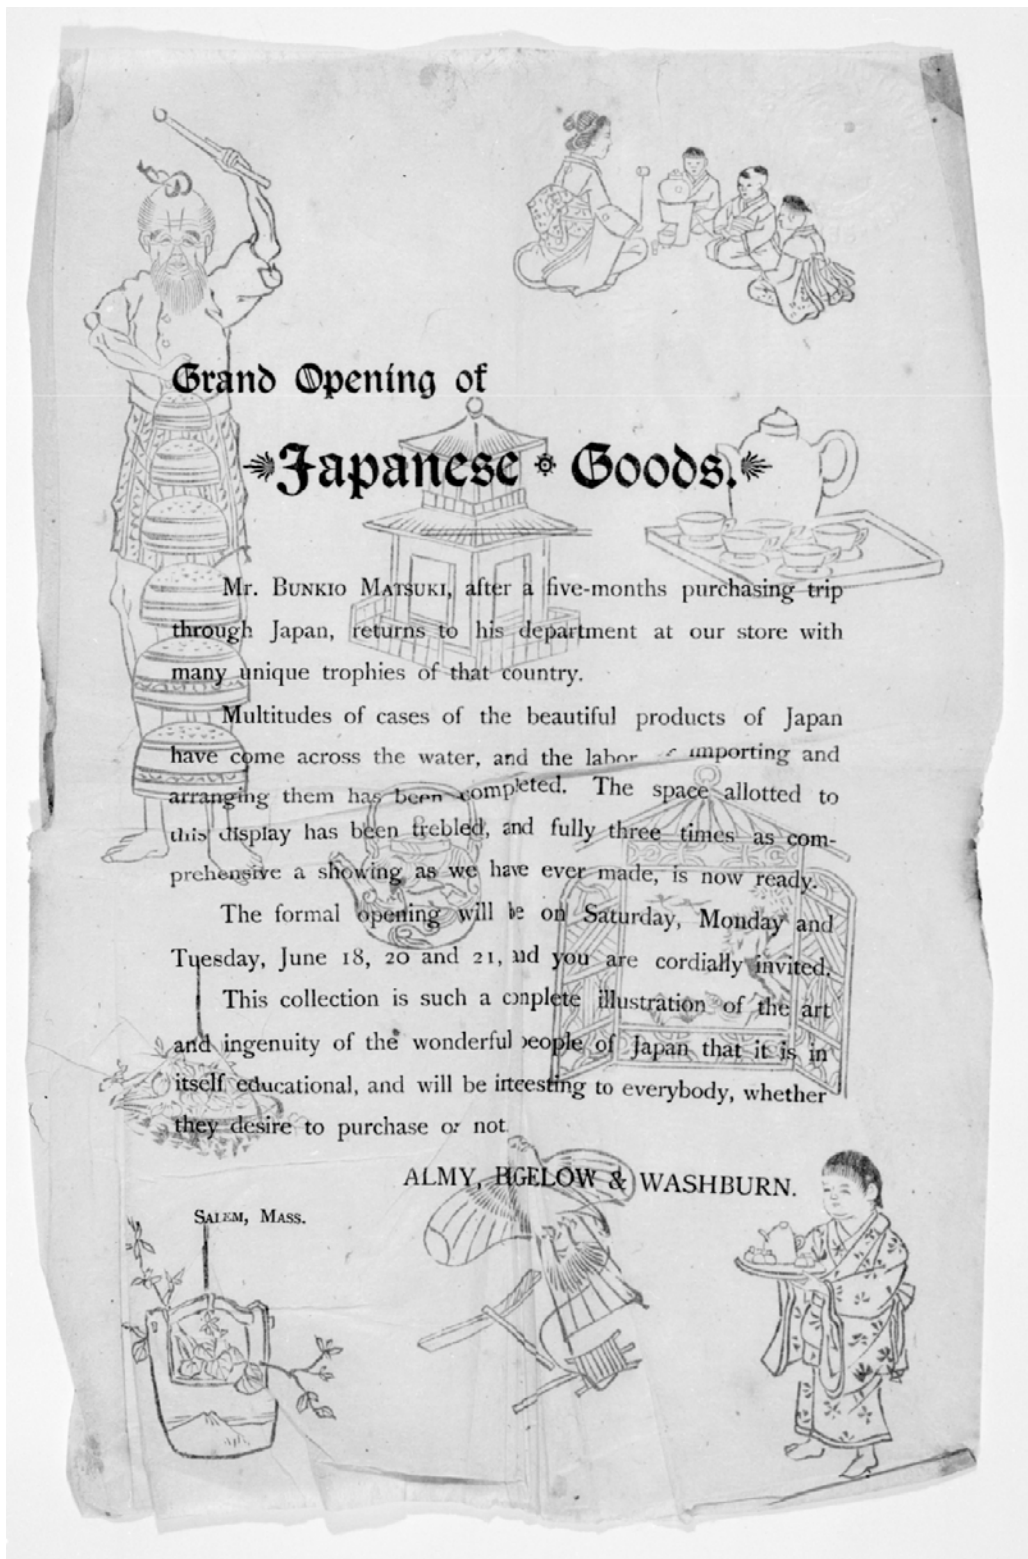 Grand Opening of
Japanese Goods.
Mr. BUNKIO MATSUKI, after a five-months purchasing trip
through Japan, returns to his department at our store with
many unique trophies of that country.
Multitudes of cases of the beautiful products of Japan
have come across the water, and the labor importing and
arranging them has been completed. The space allotted to
this display has been trebled, and fully three times as com-
prehensive a showing as we have ever made, is now ready.
The formal opening will be on Saturday, Monday and
Tuesday, June 18, 20 and 21, and you are cordially invited.
This collection is such a complete illustration of the art
and ingenuity of the wonderful people of Japan that it is in
itself educational, and will be interesting to everybody, whether
they desire to purchase or not.
ALMY, BIGELOW & WASHBURN.
SALEM, MASS.